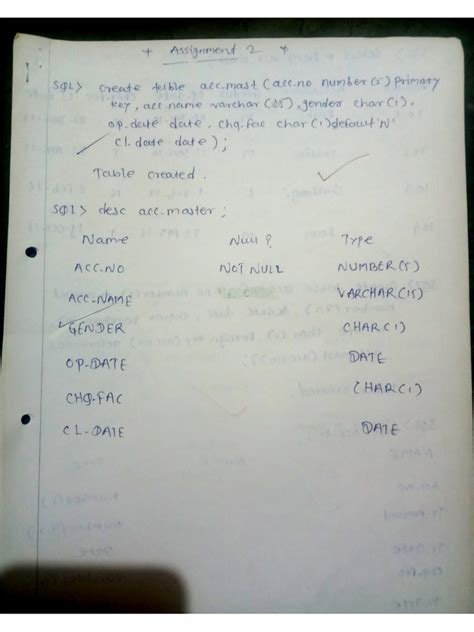 * Assignment 2 *
SQL> create table acc_mast (acc_no number(5) primary
key, acc_name varchar(15), gender char(1),
op_date date, chq_fac char(1) default 'N'
cl_date date);
Table created.
SQL> desc acc_master;
Name Null? Type
ACC_NO NOT NULL NUMBER(5)
ACC_NAME VARCHAR(15)
GENDER CHAR(1)
OP_DATE DATE
CHQ_FAC CHAR(1)
CL_DATE DATE